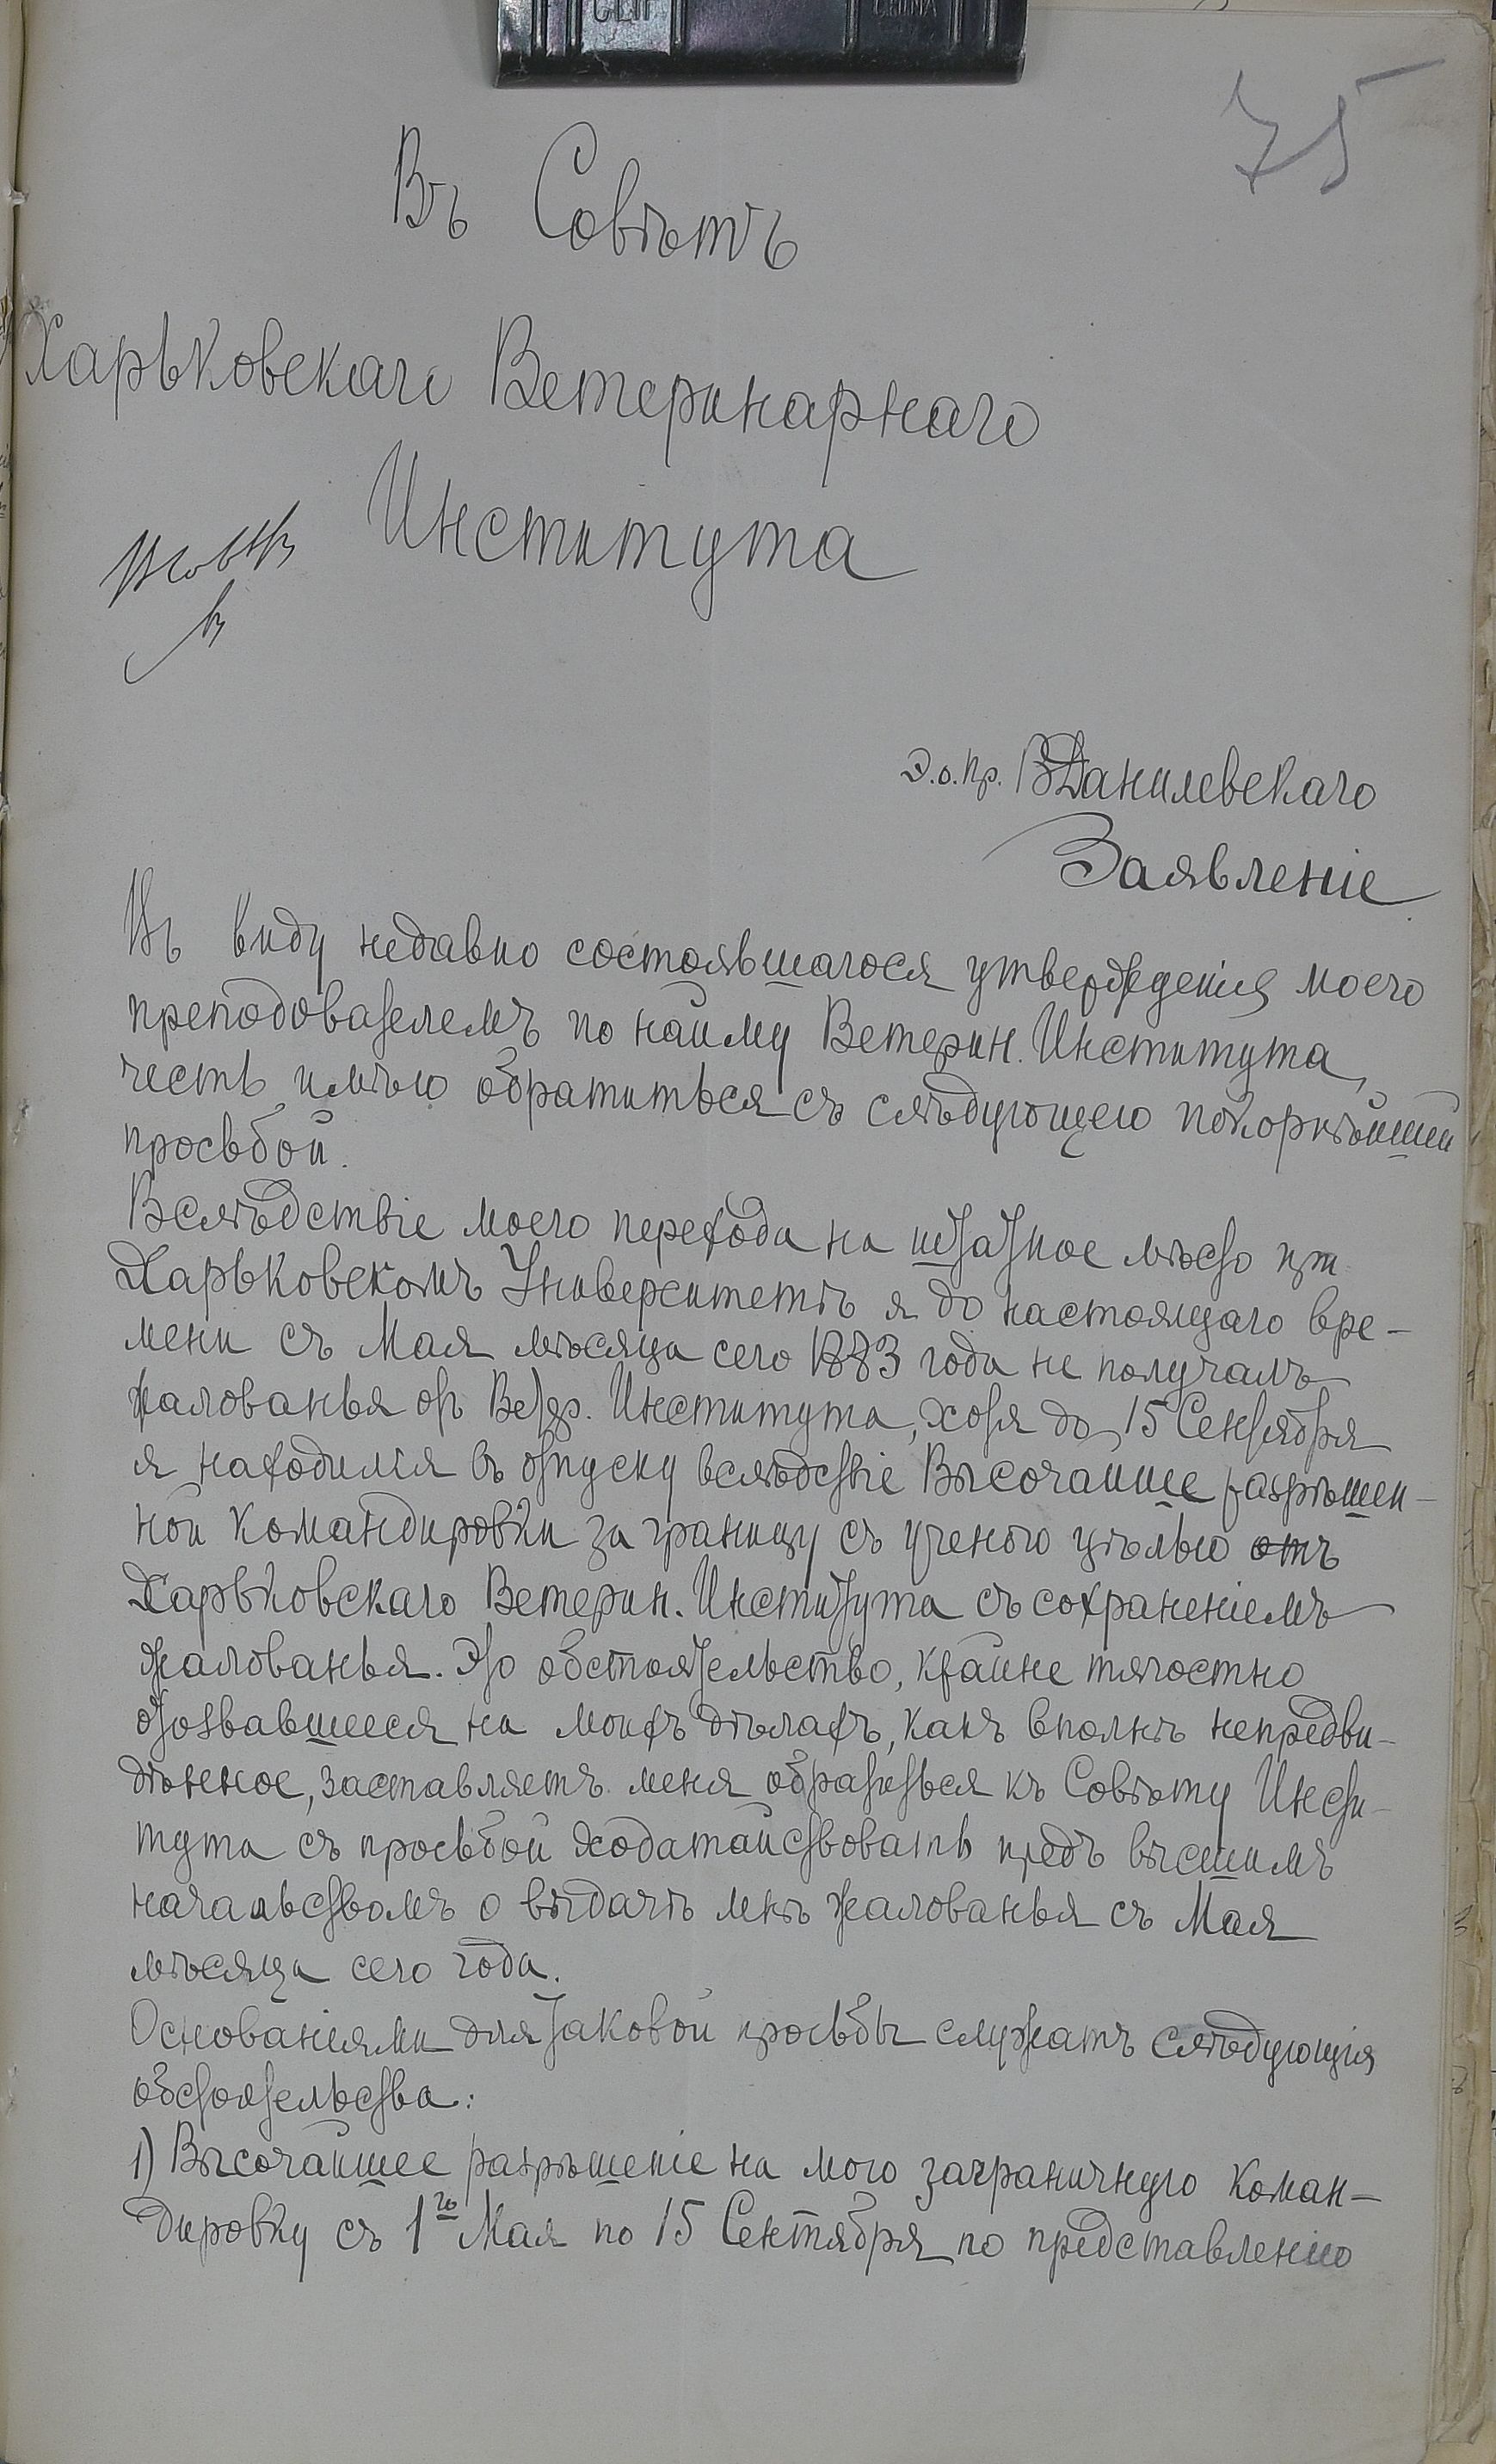 75
Въ Совѣтъ
Харьковскаго Ветеринарнаго
Института
Э.о.пр. ВДанилевскаго
Заявленіе
Въ виду недавно состоявшагося утвержденія моего
преподавателемъ по найму Ветерин. Института,
честь имѣю обратиться съ слѣдующею покорнѣйшей
просьбой.
Вслѣдствіе моего перехода на штатное мѣсто при
Харьковскомъ Университетѣ я до настоящаго вре-
мени съ Мая мѣсяца сего 1883 года не получалъ
жалованья отъ Ветер. Института, хотя до 15 Сентября
я находился въ отпуску вслѣдствіе Высочайше разрѣшен-
ной командировки за границу съ ученою цѣлью отъ
Харьковскаго Ветерин. Института съ сохраненіемъ
жалованья. Это обстоятельство, крайне тягостно
отозвавшееся на моихъ дѣлахъ, какъ вполнѣ непредви-
дѣнное, заставляетъ меня обратиться къ Совѣту Инсти-
тута съ просьбой ходатайствовать предъ высшимъ
начальствомъ о выдачѣ мнѣ жалованья съ Мая
мѣсяца сего года.
Основаніями для таковой просьбы служатъ слѣдующія
обстоятельства:
1) Высочайшее разрѣшеніе на мою заграничную коман-
дировку съ 1го Мая по 15 Сентября по представленію